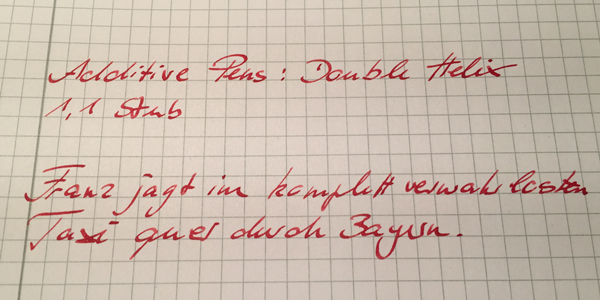 Additive Pens: Double Helix
1,1 Stub
Franz jagt im komplett verwahrlosten
Taxi quer durch Bayern.